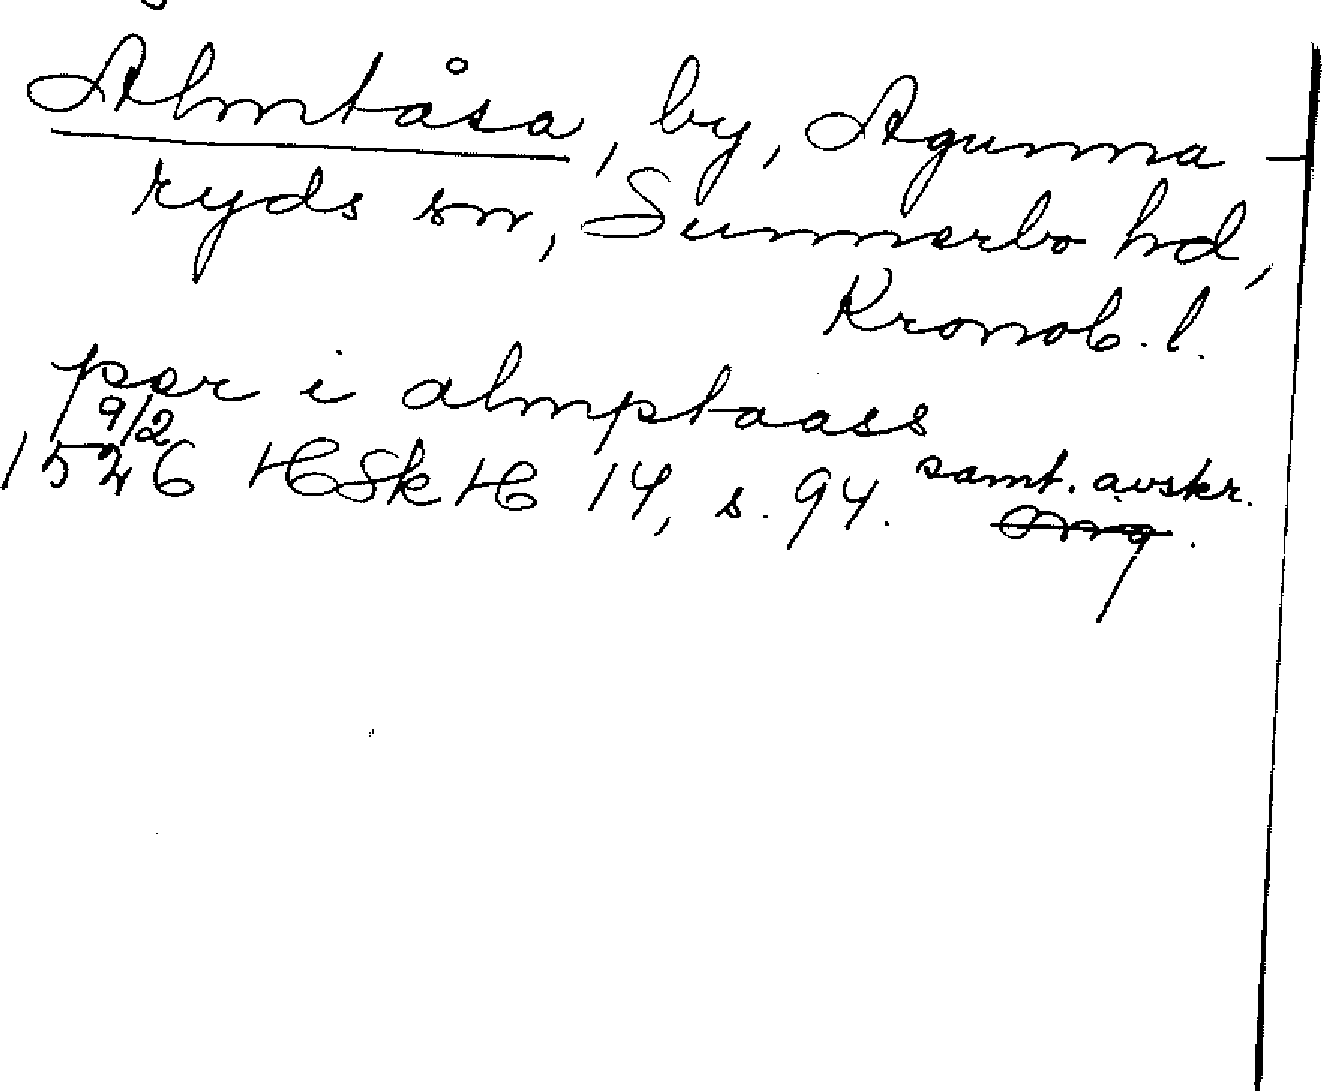 Almtåsa, by, Agunna-
ryds sn, Sunnerbo hd,
Kronob. l.
per i almptaass
9/2
1526 HSkH 14, s. 94. samt. avskr.